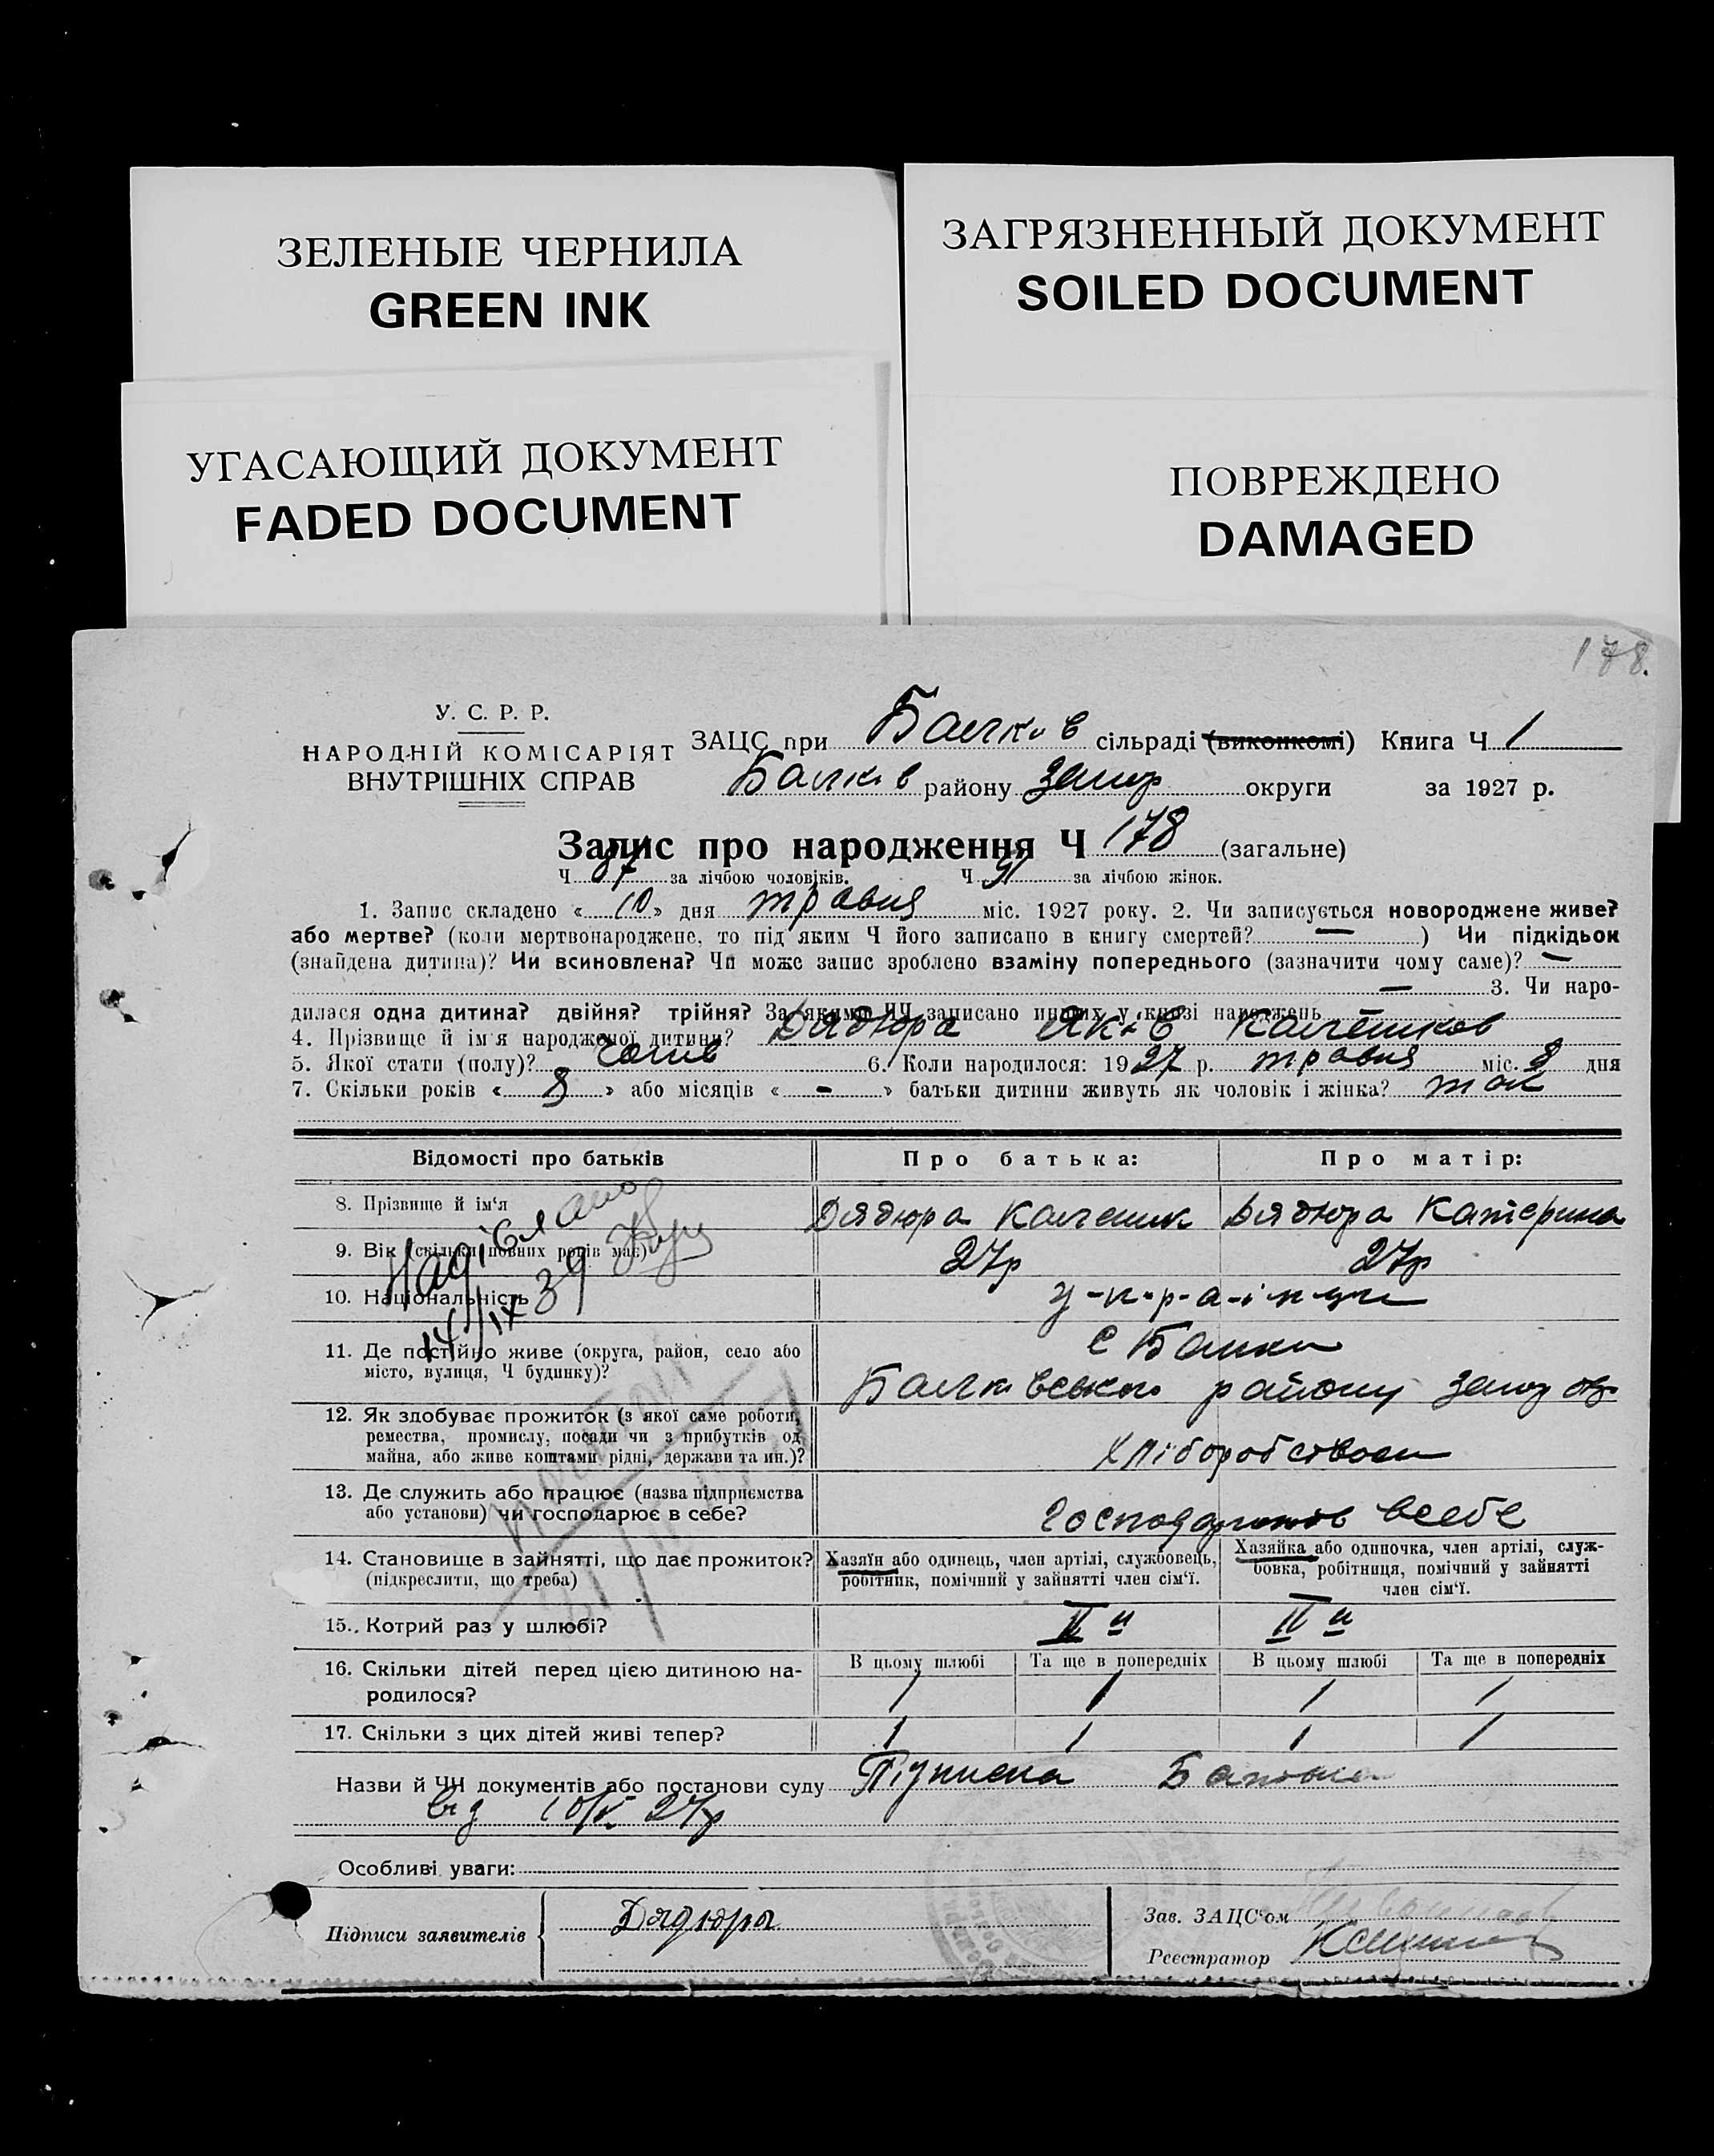 ЗЕЛЕНЫЕ ЧЕРНИЛА
GREEN INK
ЗАГРЯЗНЕННЫЙ ДОКУМЕНТ
SOILED DOCUMENT
УГАСАЮЩИЙ ДОКУМЕНТ
FADED DOCUMENT
ПОВРЕЖДЕНО
DAMAGED
178.
У. С. Р. Р.
НАРОДНІЙ КОМІСАРІЯТ
ВНУТРІШНІХ СПРАВ
ЗАЦС при Балків сільраді (виконкомі) Книга Ч 1
Балків району Запор округи за 1927 р.
Запис про народження Ч 178 (загальне)
Ч 87 за лічбою чоловіків. Ч 91 за лічбою жінок.
1. Запис складено « 10 » дня травня міс. 1927 року. 2. Чи записується новороджене живе?
або мертве? (коли мертвонароджене, то під яким Ч його записано в книгу смертей? — ) Чи підкідьок
(знайдена дитина)? Чи всиновлена? Чи може запис зроблено взаміну попереднього (зазначити чому саме)? —
— 3. Чи наро-
дилася одна дитина? двійня? трійня? За якими ЧЧ записано инших у книзі народжень
4. Прізвище й ім'я народженої дитини? Дядюра Яків
5. Якої стати (полу)? 6. Коли народилося: 1927 р. травня міс. 8 дня
7. Скільки років « 8 » або місяців « - » батьки дитини живуть як чоловік і жінка? так
Відомості про батьків
Про батька:
Про матір:
8. Прізвище й ім'я
Дядюра
Дядюра Катерина
9. Вік (скільки повних років має)
27р
27р
10. Національність
у-к-р-а-ї-н-ци
14/IX 39
11. Де постійно живе (округа, район, село або
місто, вулиця, Ч будинку)?
с Балки
Балківського району Запор окр
12. Як здобуває прожиток (з якої саме роботи,
ремества, промислу, посади чи з прибутків од
майна, або живе коштами рідні, держави та ин.)?
Хліборобством
13. Де служить або працює (назва підприємства
або установи) чи господарює в себе?
господарює всебе
14. Становище в зайнятті, що дає прожиток?
(підкреслити, що треба)
Хазяїн або одинець, член артілі, службовець,
робітник, помічний у зайнятті член сім'ї.
Хазяйка або одиночка, член артілі, служ-
бовка, робітниця, помічний у зайнятті
член сім'ї.
15. Котрий раз у шлюбі?
II й
II й
16. Скільки дітей перед цією дитиною на-
родилося?
В цьому шлюбі
Та ще в попередніх
В цьому шлюбі
Та ще в попередніх
1
1
1
1
17. Скільки з цих дітей живі тепер?
1
1
1
1
Назви й ЧЧ документів або постанови суду Підписка Батька
від 10/V 27р
Особливі уваги:
Підписи заявителів
Дядюра
Зав. ЗАЦС'ом
Реєстратор